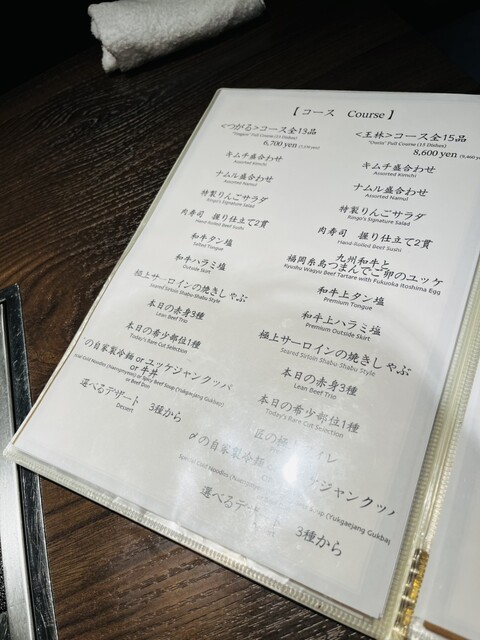 【 コース Course 】
<つがる>コース全13品
"Tsugaru" Full Course (13 Dishes)
6,700 yen
キムチ盛合わせ
Assorted Kimchi
ナムル盛合わせ
Assorted Namul
特製りんごサラダ
Ringo's Signature Salad
肉寿司 握り仕立て2貫
Hand-Rolled Beef Sushi
和牛タン塩
Salted Tongue
和牛ハラミ塩
Outside Skirt
極上サーロインの焼きしゃぶ
Seared Sirloin Shabu Shabu Style
本日の赤身3種
Lean Beef Trio
本日の希少部位1種
Today's Rare Cut Selection
の自家製冷麺 or ユッケジャンクッパ
or 牛丼
Cold Noodles (Naengmyeon) or Spicy Beef Soup (Yukgaejang Gukbap)
or Beef Don
選べるデザート 3種から
Dessert
<王林>コース全15品
"Ourin" Full Course (15 Dishes)
8,600 yen
キムチ盛合わせ
Assorted Kimchi
ナムル盛合わせ
Assorted Namul
特製りんごサラダ
Ringo's Signature Salad
肉寿司 握り仕立て2貫
Hand-Rolled Beef Sushi
九州和牛と
福岡糸島つまんでご卵のユッケ
Kyushu Wagyu Beef Tartare with Fukuoka Itoshima Egg
和牛上タン塩
Premium Tongue
和牛上ハラミ塩
Premium Outside Skirt
極上サーロインの焼きしゃぶ
Seared Sirloin Shabu Shabu Style
本日の赤身3種
Lean Beef Trio
本日の希少部位1種
Today's Rare Cut Selection
匠の極上
〆の自家製冷麺
ケジャンクッパ
Special Cold Noodles
Soup (Yukgaejang Gukbap)
選べるデザート 3種から